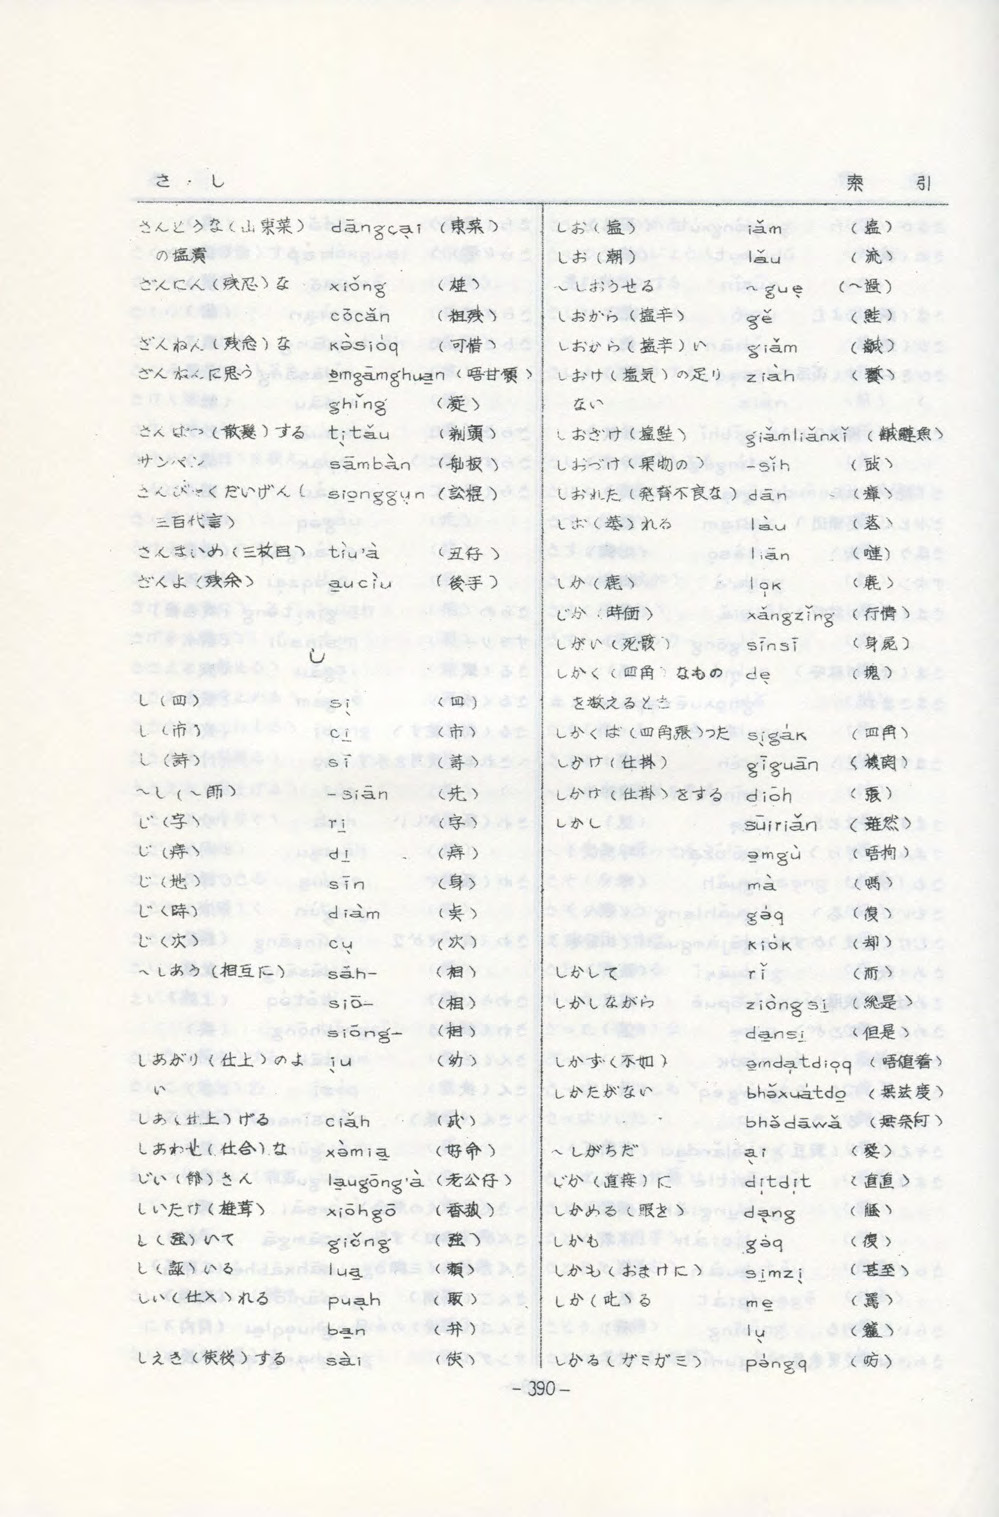 さ・し
索引
さんとうな(山東菜) dāngcại (東菜)
の塩漬
ざんにん(残忍)な xiǒng (雄)
cōcǎn (粗残)
ざんねん(残念)な kə̀sióq (可惜)
ざんねんに思う ə̲mgāmghua̲n (唔甘願)
ghǐng (凝)
さんぱつ(散髪)する tịtǎu (剃頭)
サンパン sāmbàn (舢板)
さんびゃくだいげんし siọnggụn (訟棍)
三百代言)
さんまいめ(三枚目) tìu'à (丑仔)
ざんよ(残余) a̲uciu (後手)
し
し(四) sị (四)
し(市) ci̲ (市)
し(詩) sī (詩)
〜し(〜師) -siān (先)
じ(字) ri̲ (字)
じ(痔) di̲ (痔)
じ(地) sīn (身)
じ(時) diàm (点)
じ(次) cụ (次)
〜しあう(相互に) sāh- (相)
siō- (相)
siōng- (相)
しあがり(仕上)のよ iụ (幼)
い
しあ(仕上)げる ciǎh
しあわせ(仕合)な xə̀mia̲ (好命)
じい(爺)さん la̲ugōng'à (老公仔)
しいたけ(椎茸) xiōhgō (香菰)
し(強)いて giǒng (強)
し(誣)いる lua̲ (頼)
しい(仕入)れる puạh (販)
ba̲n (弁)
しえき(使役)する sài (使)
しお(塩) iǎm (塩)
しお(潮) lǎu (流)
〜しおうせる 〜guẹ (〜過)
しおから(塩辛) gě (鮭)
しおから(塩辛)い giǎm (鹹)
しおけ(塩気)の足り ziàh
ない
しおざけ(塩鮭) giǎmliǎnxǐ (鹹鰱魚)
しおづけ(果物の) -sǐh (豉)
しおれた(発育不良な) dān
しお(萎)れる làu (落)
liān
しか(鹿) lọk (鹿)
じか(時価) xǎngzǐng (行情)
しがい(死骸) sīnsī (身屍)
しかく(四角)なもの dẹ (塊)
を数えるとき
しかくば(四角張)った sịgák (四角)
しかけ(仕掛) gīguān (機関)
しかけ(仕掛)をする diōh (張)
しかし suīriǎn (雖然)
ə̲mgù (唔拘)
mà (嗎)
gə̣q (復)
kiók (却)
しかして rǐ (而)
しかしながら ziòngsi̲ (総是)
da̲nsi̲ (但是)
しかず(不如) ə̲mdạtdiọq (唔値着)
しかたがない bhə̌xuátdo̲ (無法度)
bhə̌dāwǎ (無奈何)
〜しがちだ ại (愛)
じか(直接)に dịtdịt (直直)
しかめる(眼を) dạng
しかも gə̣q (復)
しかも(おまけに) si̲mzị (甚至)
しか(叱)る me̲ (罵)
lụ
しかる(ガミガミ) pə̀ngq
-390-